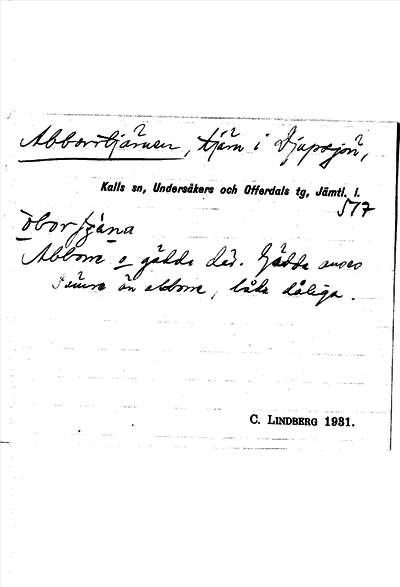 Abborrtjärnen, tjärn i Djupsjön,
Kalls sn, Undersåkers och Offerdals tg, Jämtl. l.
517
Abborre o gädda där. Gädda anses
sämre än abborre, båda dåliga.
C. LINDBERG 1931.